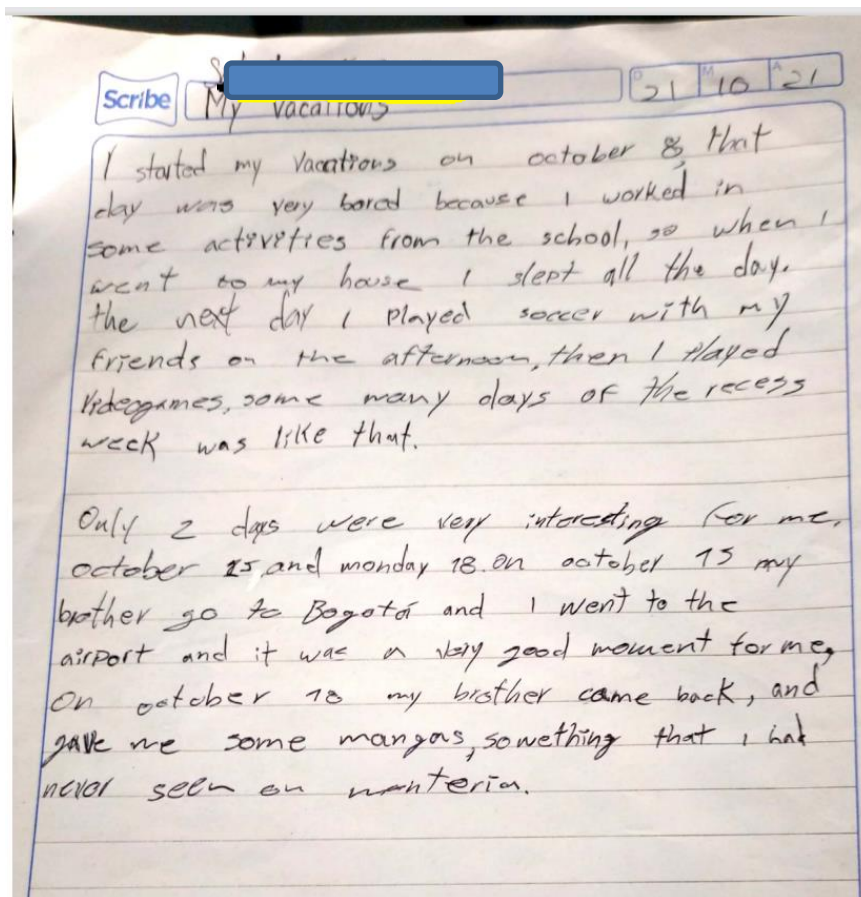 Scribe
My vacations
D 21 M 10 A 21
I started my Vacations on october 8, that
day was very bored because I worked in
some activities from the school, so when I
went to my house I slept all the day.
the next day I Played soccer with my
friends on the afternoon, then I Played
Videogames, some many days of the recess
week was like that.
Only 2 days were very interesting for me,
october 15 and monday 18. on october 15 my
brother go to Bogotá and I went to the
airport and it was a very good moment for me,
On october 18 my brother came back, and
gave me some mangas, something that I had
never seen on monteria.